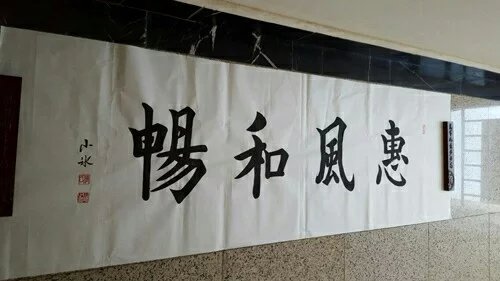 惠風和暢
小冰